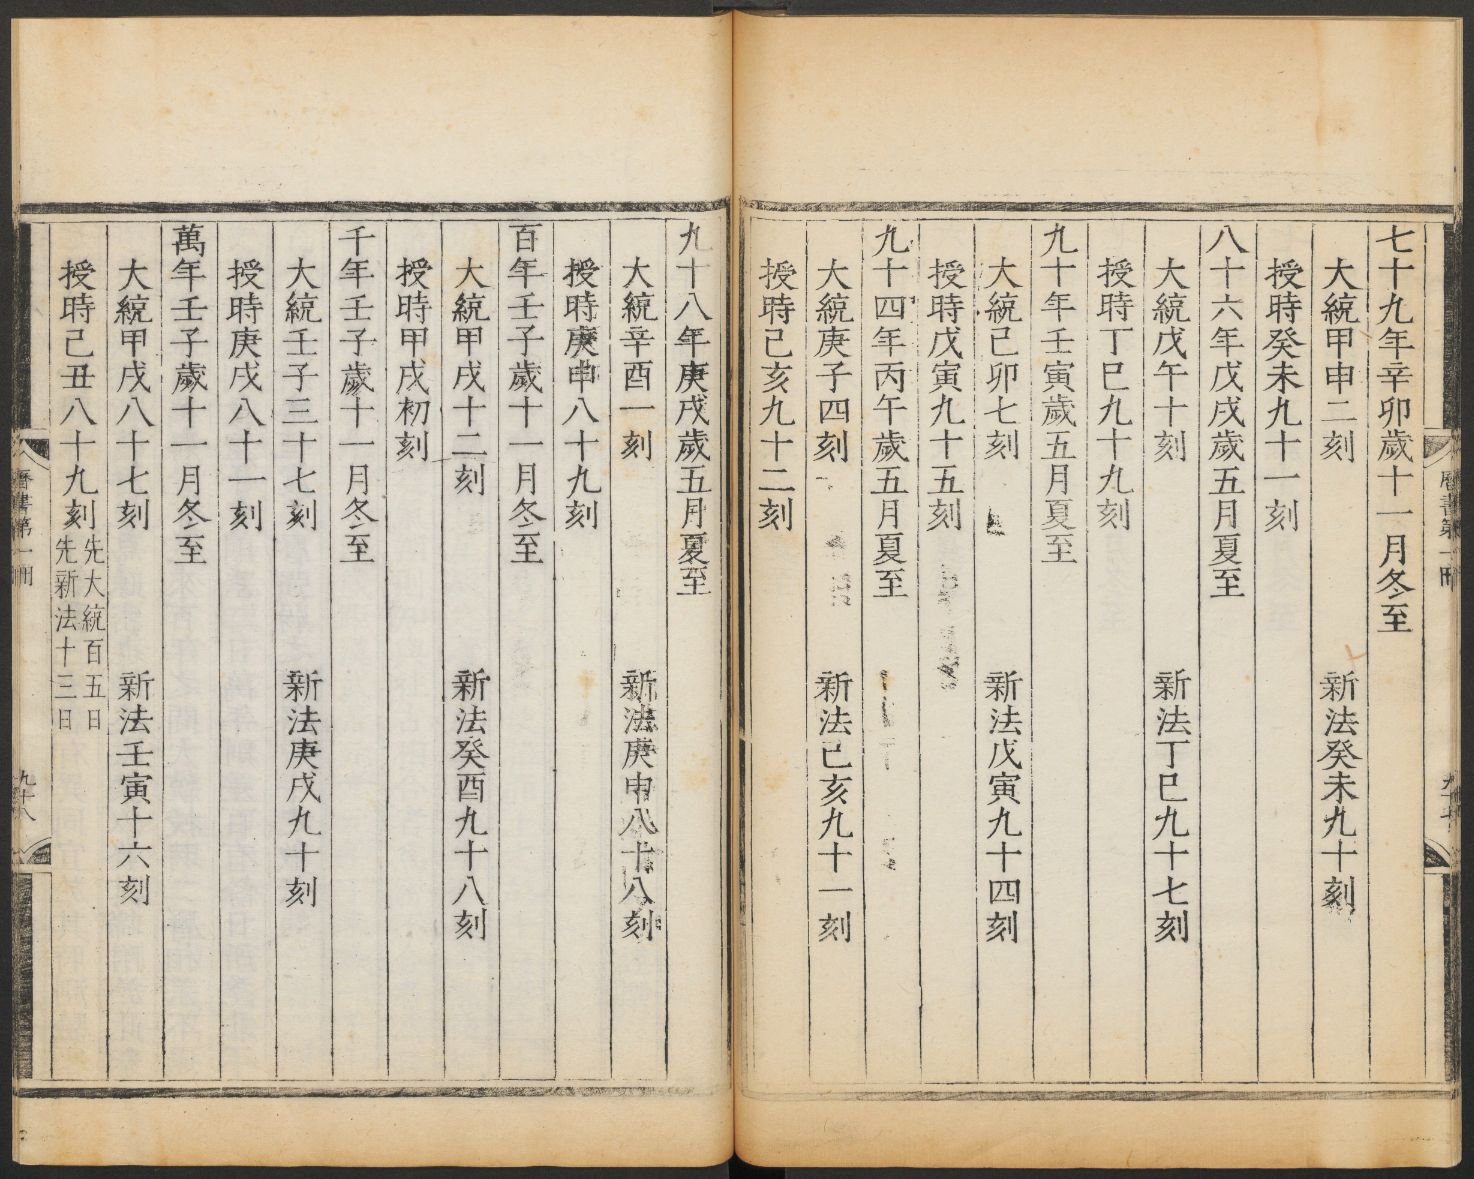 七十九年辛卯歲十一月冬至
大統甲申二刻 新法癸未九十刻
授時癸未九十一刻
八十六年戊戌歲五月夏至
大統戊午十刻 新法丁巳九十七刻
授時丁巳九十九刻
九十年壬寅歲五月夏至
大統己卯七刻 新法戊寅九十四刻
授時戊寅九十五刻
九十四年丙午歲五月夏至
大統庚子四刻 新法己亥九十一刻
授時己亥九十二刻
九十八年庚戌歲五月夏至
大統辛酉一刻 新法庚申八十八刻
授時庚申八十九刻
百年壬子歲十一月冬至
大統甲戌十二刻 新法癸酉九十八刻
授時甲戌初刻
千年壬子歲十一月冬至
大統壬子三十七刻 新法庚戌九十刻
授時庚戌八十一刻
萬年壬子歲十一月冬至
大統甲戌八十七刻 新法壬寅十六刻
授時己丑八十九刻 先大統百五日
先新法十三日
曆書第一冊
九十八